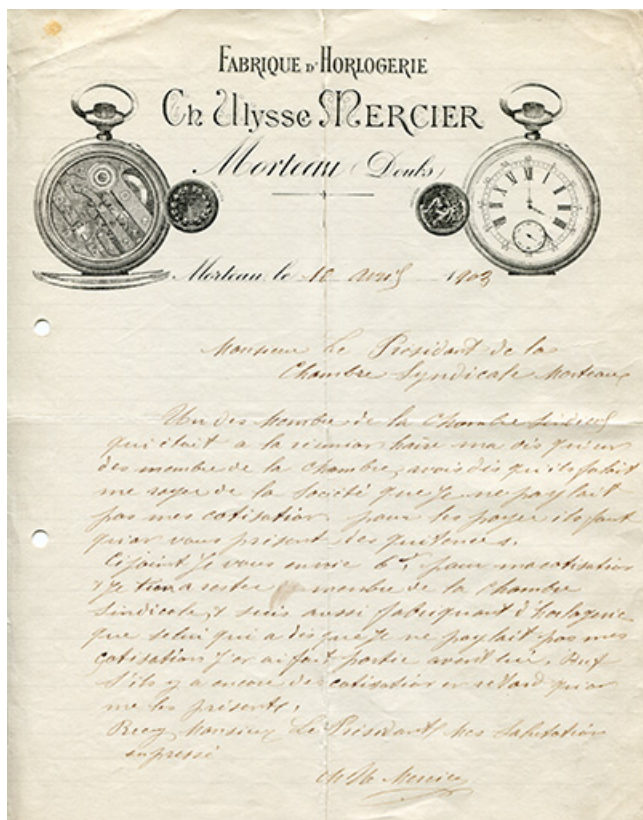 FABRIQUE D'HORLOGERIE
Ch Ulysse MERCIER
Morteau (Doubs)
Morteau, le 10 avril 1903
Monsieur Le Président de la
Chambre Syndicale Morteau
Un des Membre de la Chambre
qui était a la réunion ma dis qu'un
des membre de la Chambre, avais dis qu'ils falait
me rayer de la Société que Je ne payait
pas mes cotisation, pour les payer ils faut
qu'on vous présent des quitences.
Cijoint Je vous envoie 6f pour ma cotisation
& Je tien a rester membre de la Chambre
Sindicale, & suis aussi fabriquant d'horlogerie
que selui qui a dis que Je ne payait pas mes
cotisation J'en ai fait partie avent lui.
S'ils y a encore des cotisation en retard qu'on
me les présente.
Recev Monsieur Le Président Mes Salutation
enpressé
Ch Ul Mercier